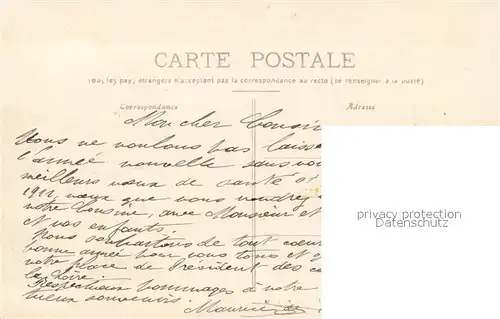 CARTE POSTALE
Tous les pays étrangers n'acceptent pas la correspondance au recto (se renseigner à la poste)
Correspondance
Adresse
Mon cher Cousin
Nous ne voulons pas laisse
l'année nouvelle sans vou
meilleurs vœux de santé
1911, vœux que vous voudrez
votre Cousine, avec Monsieur et
et vos enfants.
Nous souhaitons de tout cœur
bonne année pour vous tous et
votre place de Président des
la Loire.
Respectueux hommages à notre
vieux souvenirs.
Maurice de
privacy protection
Datenschutz